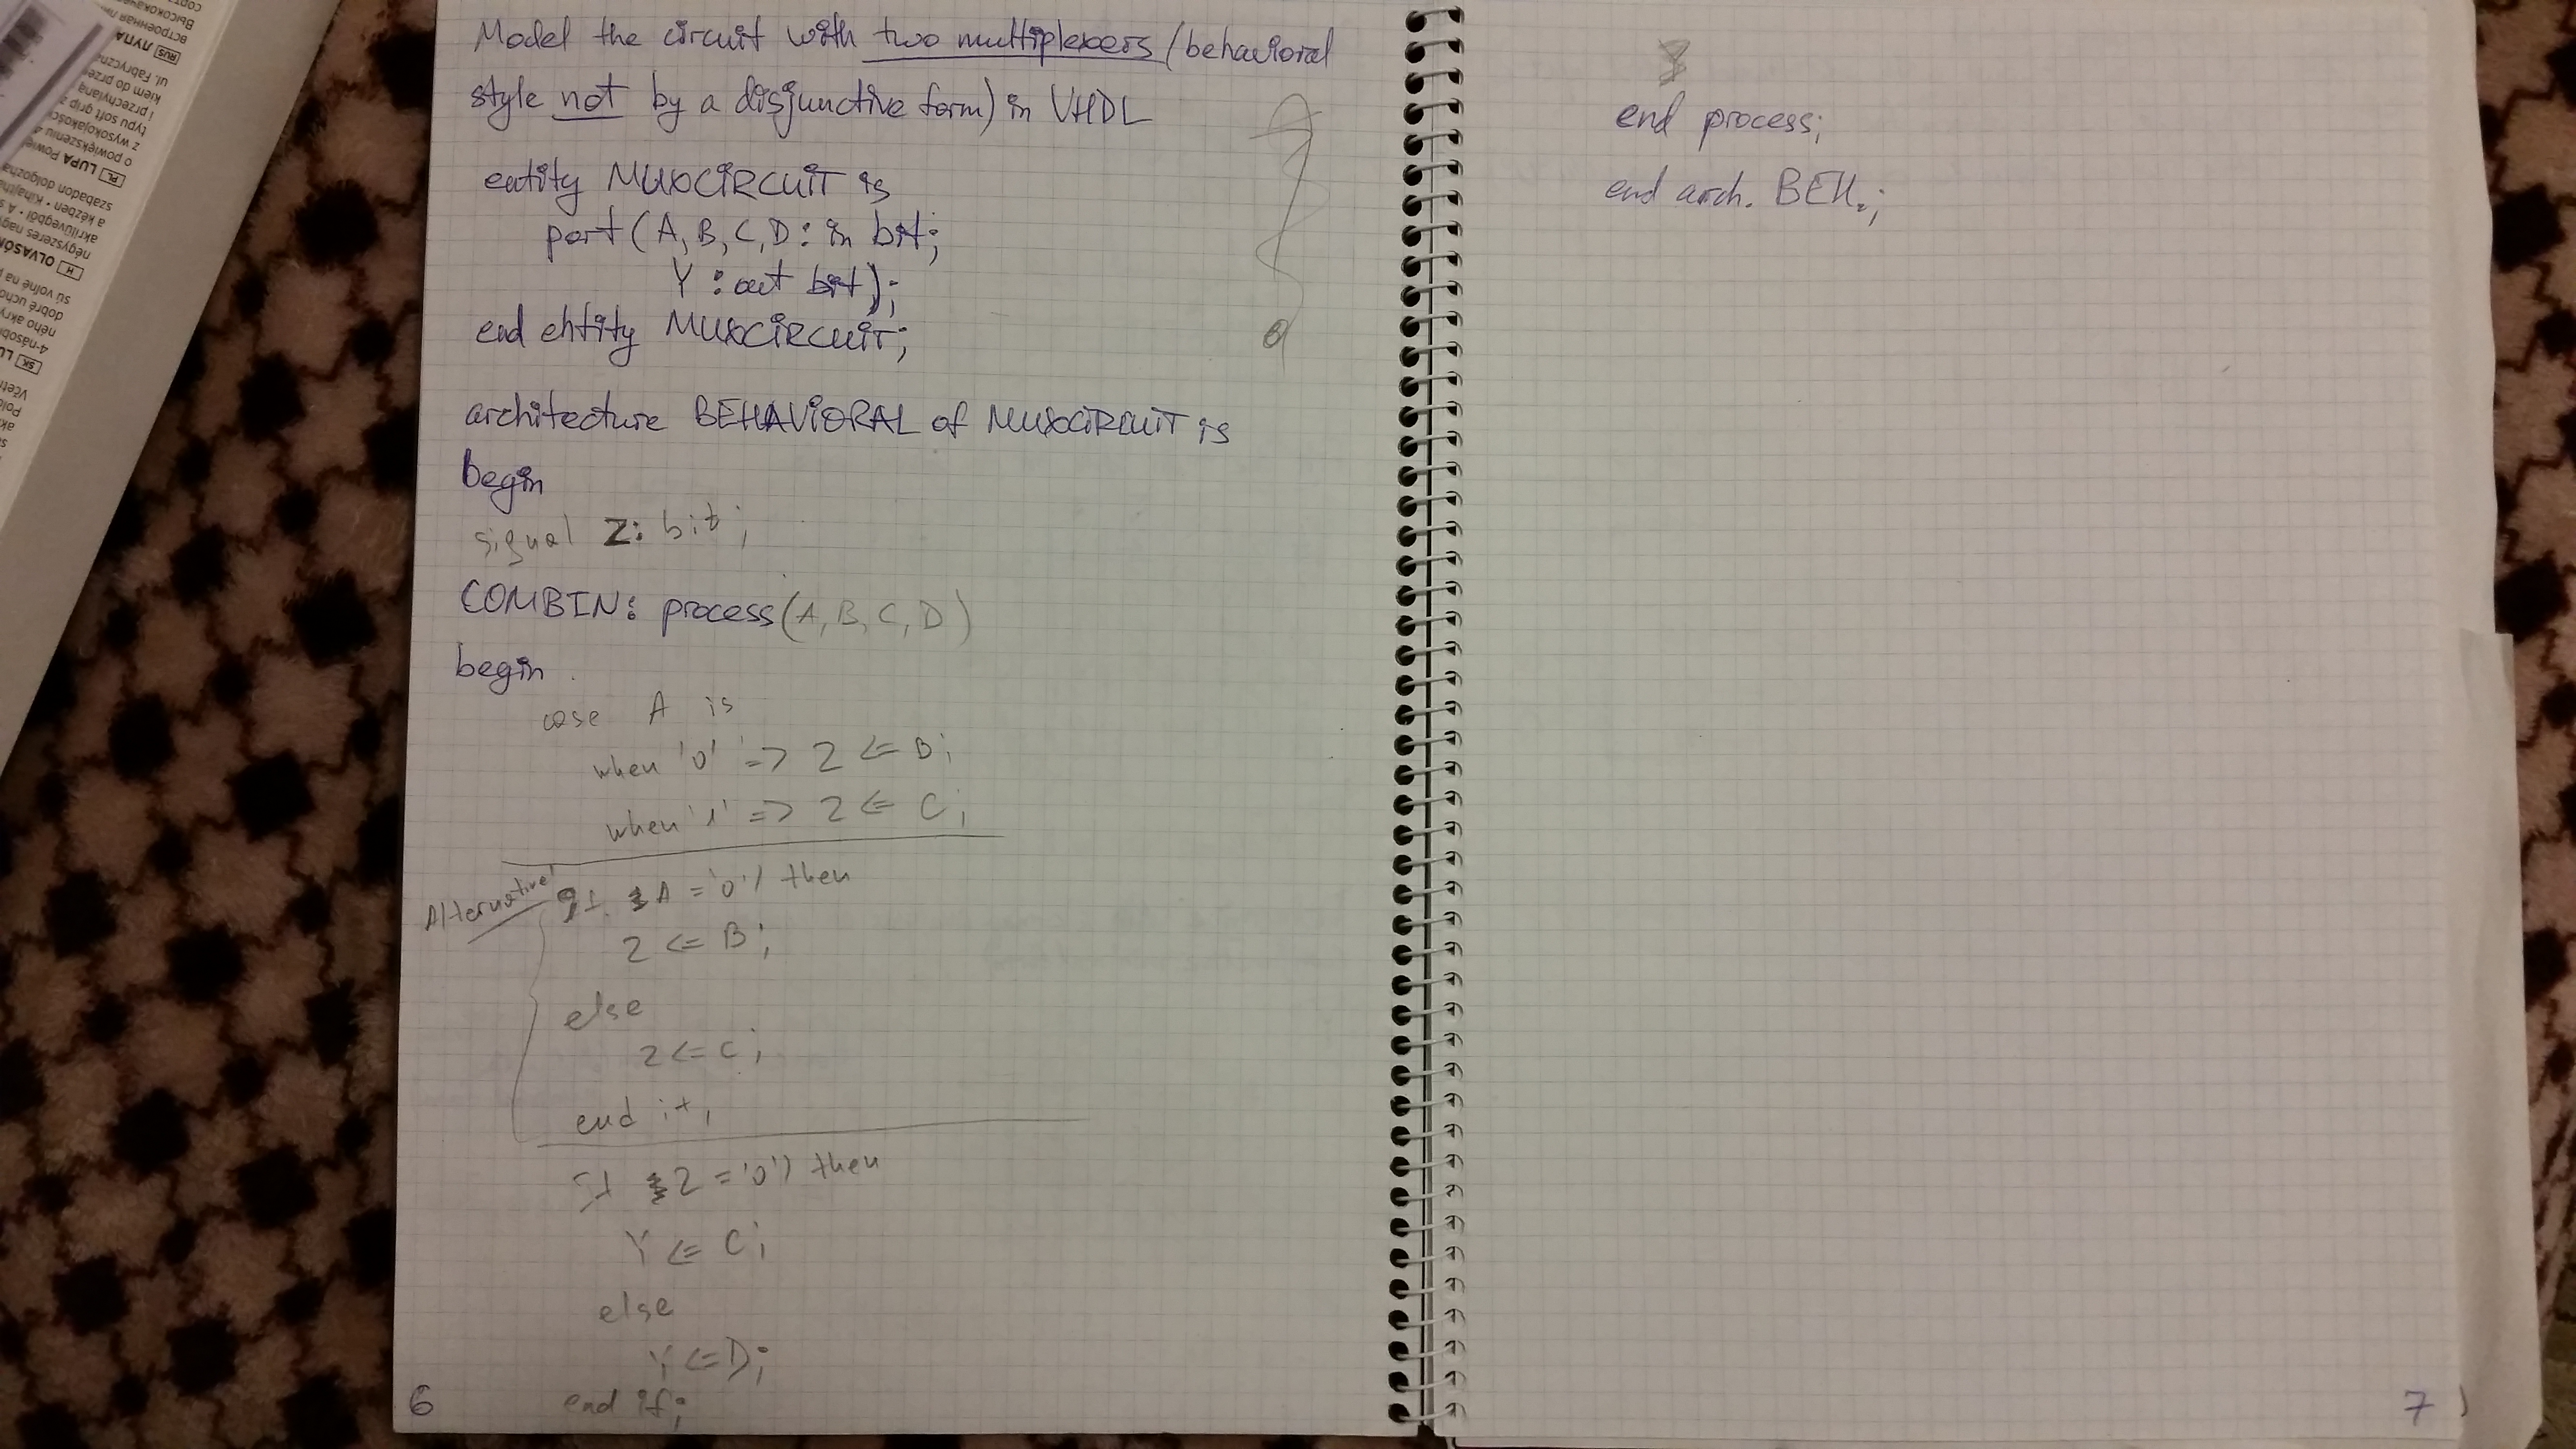 Model the circuit with two multiplexers (behavioral
style not by a disjunctive form) in VHDL
entity MUXCIRCUIT is
port (A, B, C, D : in bit;
Y : out bit);
end entity MUXCIRCUIT;
architecture BEHAVIORAL of MUXCIRCUIT is
begin
signal Z: bit;
COMBIN: process (A, B, C, D)
begin
case A is
when '0' => Z <= B;
when '1' => Z <= C;
Alternative
If A = '0') then
Z <= B;
else
Z <= C;
end if;
If Z = '0') then
Y <= C;
else
Y <= D;
end if;
6
end process;
end arch. BEH.;
7
RUS ЛУПА
PL LUPA
H OLVASÓ
SK LU